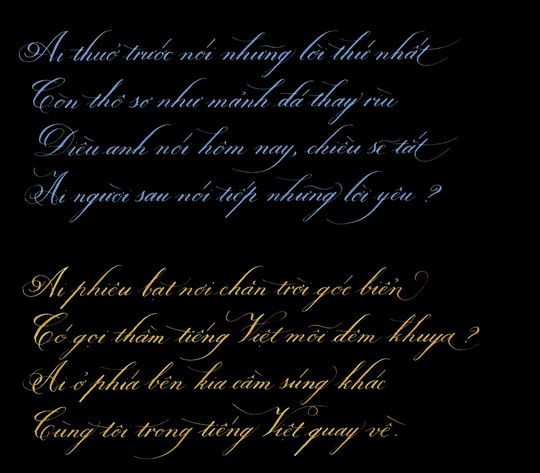 Ai thuở trước nói những lời thứ nhất
Còn thô sơ như mảnh đá thay rìu
Điều anh nói hôm nay, chiều sẽ tắt
Ai người sau nói tiếp những lời yêu ?
Ai phiêu bạt nơi chân trời góc biển
Có gọi thầm tiếng Việt mỗi đêm khuya ?
Ai ở phía bên kia cầm súng khác
Cùng tôi trong tiếng Việt quay về.